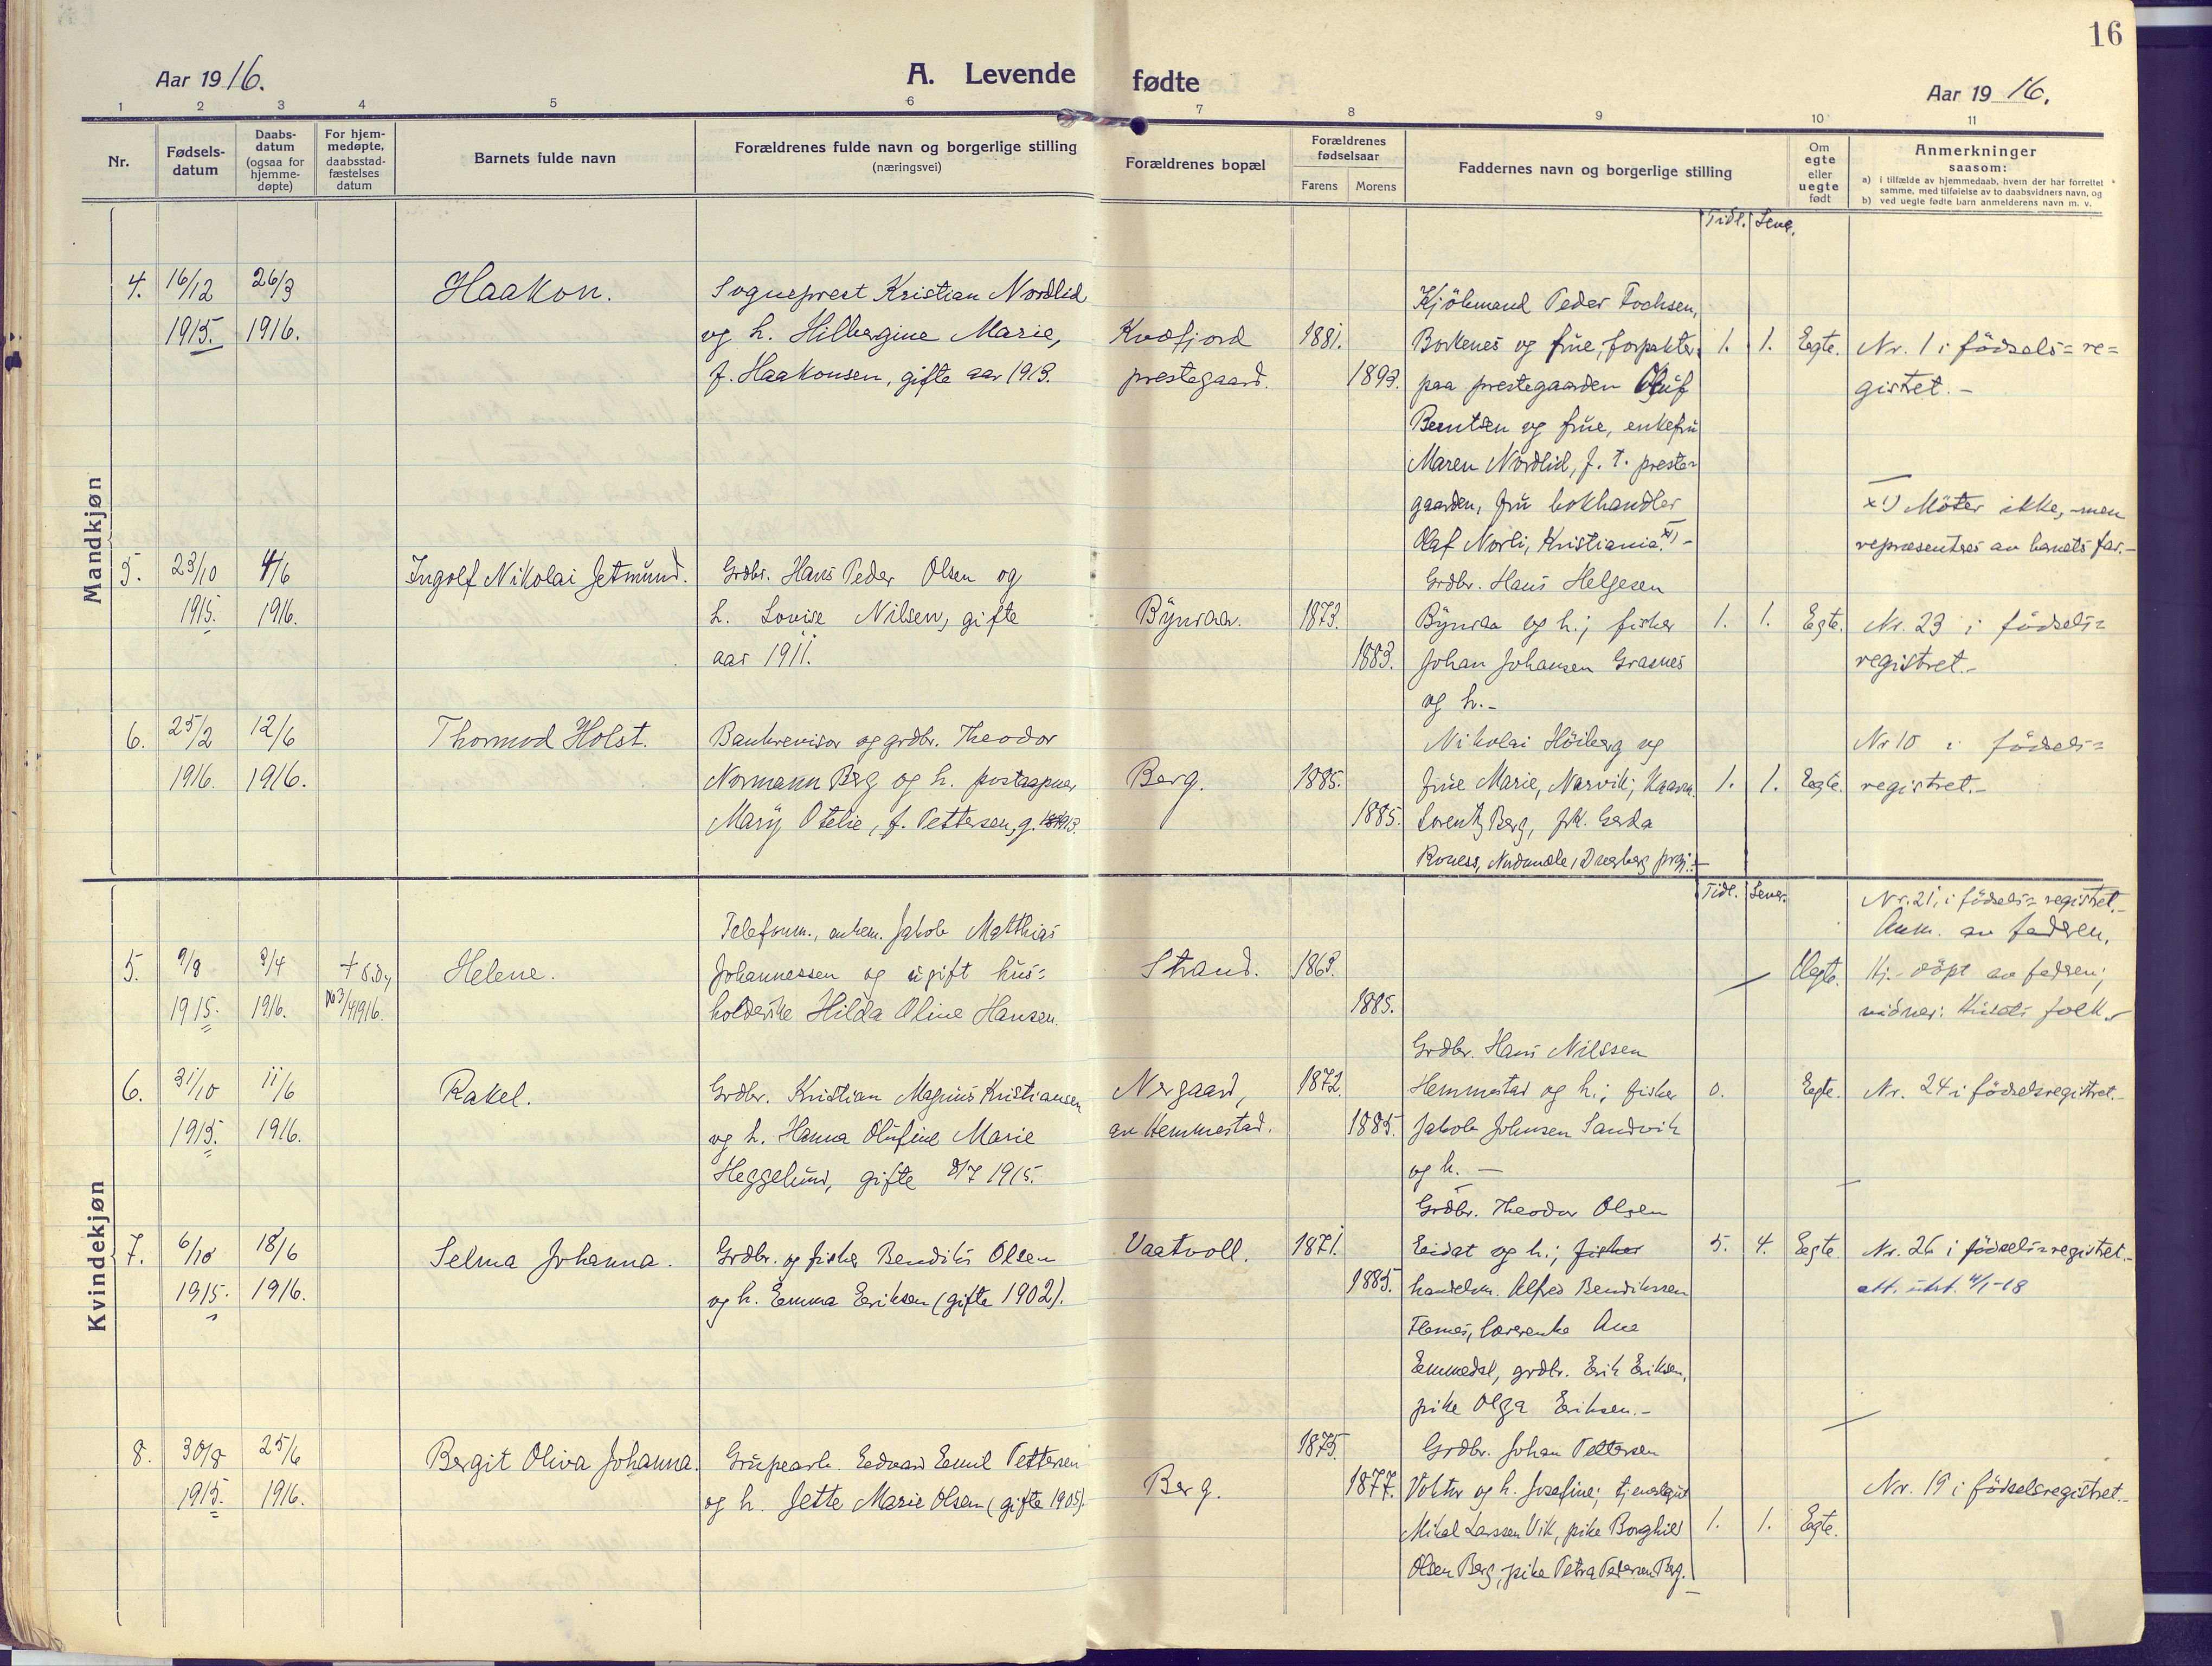 16
Aar 1916.
A. Levende fødte
Aar 1916.
1 2 3 4 5 6 7 8 9 10 11
Nr.
Fødsels-
datum
Daabs-
datum
(ogsaa for
hjemme-
døpte)
For hjem-
medøpte,
daabsstad-
fæstelses
datum
Barnets fulde navn
Forældrenes fulde navn og borgerlige stilling
(næringsvei)
Forældrenes bopæl
Forældrenes
fødselsaar
Farens
Morens
Faddernes navn og borgerlige stilling
Om
egte
eller
uegte
født
Anmerkninger
saasom:
a) i tilfælde av hjemmedaab, hvem der har forrettet
samme, med tilføielse av to daabsvidners navn, og
b) ved uegte fødte barn anmelderens navn m. v.
Mandkjøn
Tidl.
4.
16/12
1915.
26/3
1916.
Haakon.
Sogneprest Kristian Nordlid
og h. Hilbergine Marie,
f. Haakonsen, gifte aar 1913.
Kvæfjord
prestegaard.
1881.
1893.
Kjöbmand Peder Fochsen,
Borkenes og frue, forpakter
paa prestegaarden Oluf
Berntsen og frue, enkefru
Maren Nordlid, f. t. preste-
gaarden, fru bokhandler
Olaf Norli, Kristiania x) -
1. 1.
Egte.
Nr. 1 i födsels= re=
gistret. -
x1) Möter ikke, -men
repræsenteres av barnets far. -
5.
23/10
1915.
4/6
1916.
Ingolf Nikolai Jetmund.
Grdbr. Hans Peder Olsen og
h. Lovise Nilsen, gifte
aar 1911.
Bÿnsaa.
1873.
1883.
Grdbr. Hans Helgesen
Bÿnsaa og h.; fisker
Johan Johansen Grasnes
og h. -
1. 1.
Egte.
Nr. 23 i födsels=
registret. -
6.
25/2
1916.
12/6
1916.
Thormod Holst.
Bankrevisor og grdbr. Theodor
Normann Berg og h. postaapner
Marÿ Otelie, f. Pettersen, g. 1913.
Berg.
1885.
1885.
Nikolai Höiberg og
frue Marie, Narvik;
Lorentz Berg, frk. Gerda
1. 1.
Egte.
Nr 10 i födsels=
registret. -
Kvindekjøn
Tidl.
5.
9/8
1915.
3/4
1916.
Helene.
Jakob Matthias
Johannessen og ugift hus=
holderske Hilda Oline Hansen.
Strand.
1863.
1885.
Uegte.
Nr. 21, i födsels= registret. -
Anm. av faderen.
Hj.-döpt av fadren;
vidner: Husets folk. -
6.
31/10
1915.
11/6
1916.
Rakel.
Grdbr. Kristian Magnus Kristiansen
og h. Hanna Olufine Marie
Heggelund, gifte 8/7 1915.
Nergaard,
av Hemmestad.
1872.
1885.
Grdbr. Hans Nilssen
Hemmestad og h.; fisker
Jakob Johnsen Sandvik
og h. -
0.
Egte.
Nr. 24 i födselsregistret. -
7.
6/10
1915.
18/6
1916.
Selma Johanna.
Grdbr. og fisker Bendiks Olsen
og h. Emma Eriksen (gifte 1902).
Vaatvoll.
1871.
1885.
Grdbr. Theodor Olsen
Eidet og h.; fisker
handelsm. Alfred Bendikssen
Flesnes, lærerenke Ane
Emmedal, grdbr. Erik Eriksen,
pike Olga Eriksen. -
5. 4.
Egte.
Nr. 26 i födsels=registret. -
att. utst. 4/1-18
8.
30/8
1915.
25/6
1916.
Bergit Oliva Johanna.
Grubearb. Edvard Emil Pettersen
og h. Jette Marie Olsen (gifte 1905).
Berg.
1875.
1877.
Grdbr. Johan Pettersen
Voktor og h. Josefine; tjenestegut
Mikal Larssen Vik, pike Borghild
Olsen Berg, pike Petra Petersen Berg. -
1. 1.
Egte.
Nr. 19 i födselsregistret. -